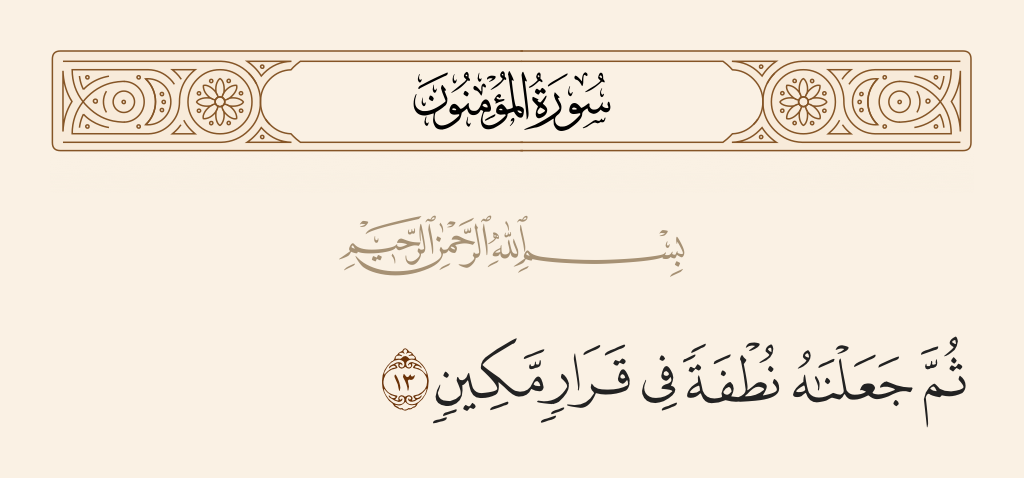 سُورَةُ المُؤْمِنُونَ
بِسْمِ ٱللَّهِ ٱلرَّحْمَٰنِ ٱلرَّحِيمِ
ثُمَّ جَعَلْنَٰهُ نُطْفَةًۭ فِى قَرَارٍۢ مَّكِينٍۢ ١٣